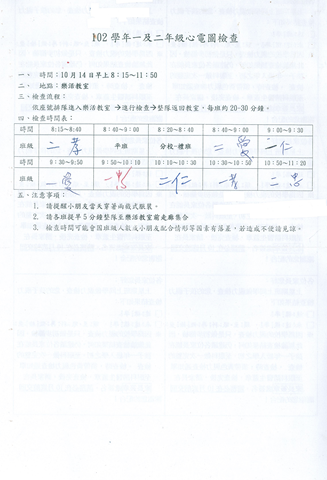 102學年一及二年級心電圖檢查
一、 時間：10月14日早上8：15～11：50
二、 地點：樂活教室
三、檢查流程：
依座號排隊進入樂活教室→進行檢查→整隊返回教室，每班約20-30分鐘。
四、檢查時間表：
時間 8:15～8:40 8:40～9:00 8:20～8:40 8:40～9:00 9:00～9:30
班級 二孝 平班 分校-禮班 二愛 一仁
時間 9:30～9:50 9:50～10:10 10:10～10:30 10:30～10:50 10:50～11:20
班級 一愛 一忠 二仁 一孝 二忠
五、注意事項：
1. 請提醒小朋友當天穿著兩截式服裝。
2. 請各班提早5分鐘整隊至樂活教室前走廊集合
3. 檢查時間可能會因班級人數或小朋友配合情形等因素有落差，若造成不便請見諒。